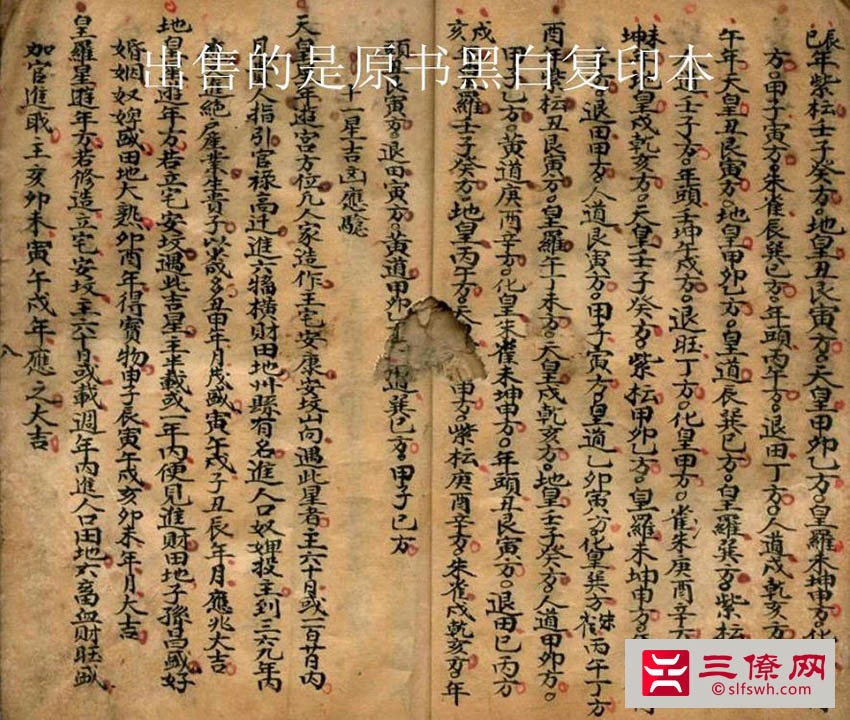 出售的是原书黑白复印本
辰巳年紫枟壬子癸方。地皇丑艮寅方。天皇甲卯乙方。皇羅未坤申方。化
方。甲子寅方。朱雀辰巽巳方。年頭丙午方。退田丁方。人道戌乾亥方
午年天皇丑艮寅方。地皇甲卯乙方。皇道辰巽巳方。皇羅巽方。紫枟
壬子方。年頭壬坤午戌方。退旺丁方。化皇甲方。雀朱庚酉辛
未坤 地皇戌乾亥方。天皇壬子癸方。紫枟甲卯乙方。皇羅未坤申方。
退田甲方。人道艮寅方。甲子寅方。皇道乙卯寅方。化皇巽方。朱雀丙午丁方
酉年紫枟丑艮寅方。皇羅午丁未方。天皇戌乾亥方。地皇壬子癸方。人道甲卯方。
甲子乙方。黃道庚酉辛方。化皇朱雀未坤申方。年頭丑艮寅方。退田巳丙方
戌亥年皇羅壬子癸方。地皇丙午方。天甲方。紫枟庚酉辛方。朱雀戌乾亥方。年
頭丑艮寅方。退田寅方。黃道甲卯道巽巳方。甲子巳方
十一星吉凶應驗
天皇星年遊宮方位凡人家造作王宅安康安坟山向遇此星者主六十日或一百廿日內
人指引官祿高迁進六畜橫財田地州縣有名進人口奴婢投主到三六九年內
絕產業生貴子以为申年月茂盛寅午戌子丑辰年月應兆大吉
地皇年遊年方若立宅安坟遇此吉星主半載或一年內便見進財田地子孫昌盛好
婚姻奴婢盛田地大熟卯酉年得寳物甲子辰寅午戌亥卯未年月大吉
皇羅星遊年方若修造立宅安坟主六十日或載週年內進人口田地六畜血財旺盛
加官進職主亥卯未寅午戌年應之大吉
八
三僚网
©slfswh.com